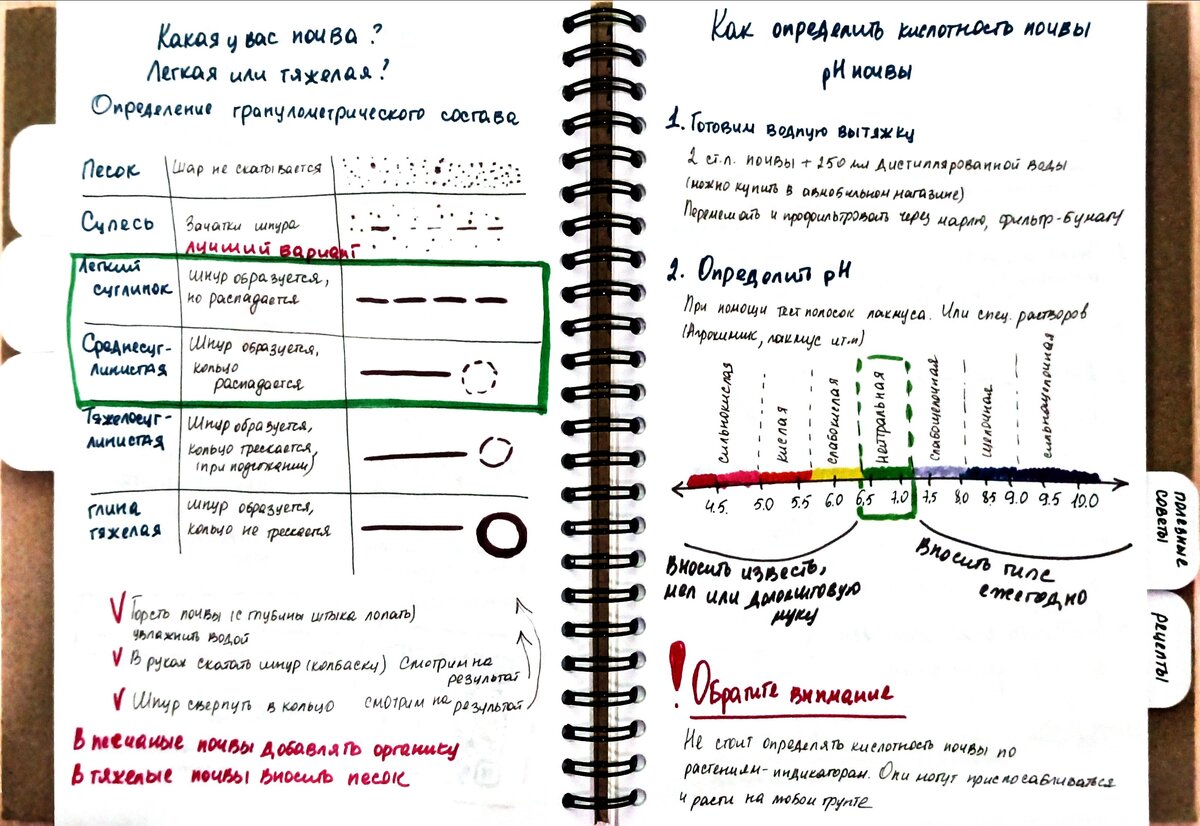 Какая у вас почва?
Легкая или тяжелая?
Определение гранулометрического состава
Песок
Шар не скатывается
Супесь
Зачатки шнура
лучший вариант
Легкий
суглинок
Шнур образуется,
но распадается
Среднесуг-
линистая
Шнур образуется,
кольцо
распадается
Тяжелосуг-
линистая
Шнур образуется,
кольцо трескается,
(при подсыхании)
глина
тяжелая
Шнур образуется,
кольцо не трескается
Горсть почвы (с глубины штыка лопаты)
увлажнить водой
В руках скатать шнур (колбаску) смотрим на
результат
Шнур свернуть в кольцо смотрим на результат
В песчаные почвы добавлять органику
В тяжелые почвы вносить песок
Как определить кислотность почвы
pH почвы
1. Готовим водную вытяжку
2 ст.л. почвы + 250 мл дистиллированной воды
(можно купить в автомобильном магазине)
Перемешать и профильтровать через марлю, фильтр-бумагу
2. Определить pH
При помощи тест полосок лакмуса. Или спец. растворов
(Агрохимик, лакмус и т.п)
сильнокислая
кислая
слабокислая
нейтральная
слабощелочная
щелочная
сильнощелочная
4.5. 5.0 5.5 6.0 6,5 7.0 7,5 8.0 8.5 9.0 9.5 10.0
Вносить известь,
мел или доломитовую
муку
Вносить гипс
ежегодно
! Обратите внимание
Не стоит определять кислотность почвы по
растениям-индикаторам. Они могут приспосабливаться
и расти на любом грунте
полезные
советы
рецепты